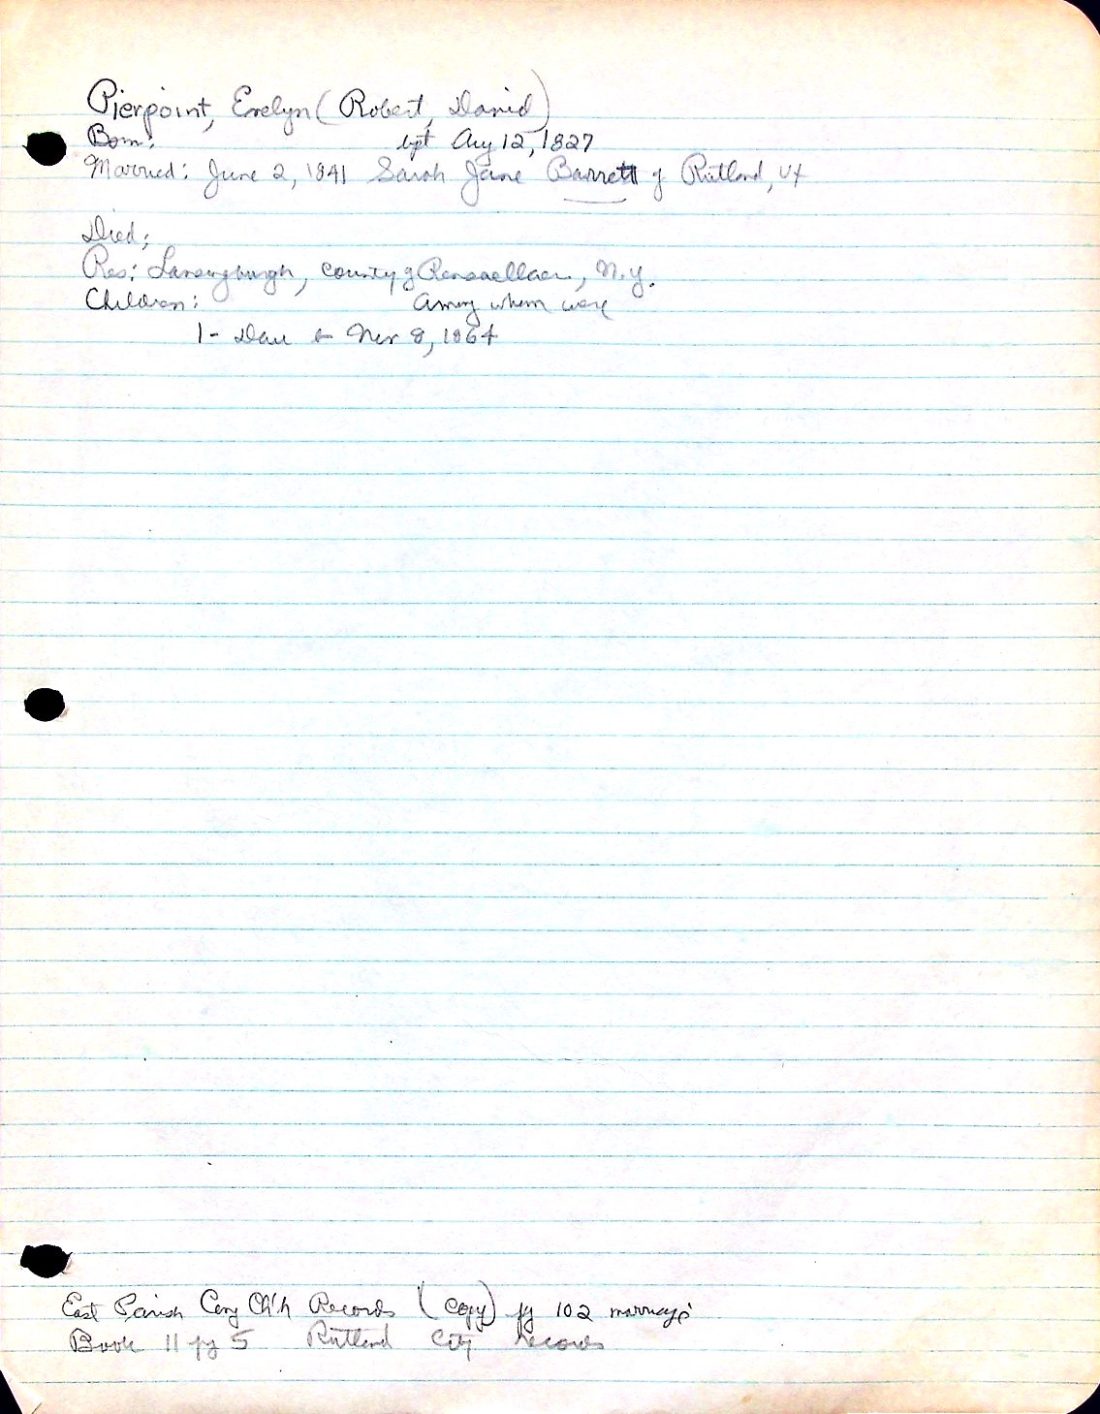 Pierpoint, Evelyn (Robert, David)
Born: bpt Aug 12, 1827
Married: June 2, 1841 Sarah Jane Barrett of Rutland, Vt
Died;
Res: Lansingburgh, county of Rensaellaer, N.Y.
Children: Among whom were
1- Dau b Nov 8, 1864
East Parish Cong Ch'h Records (copy) pg 102 marriages
Book 11 pg 5 Rutland City records